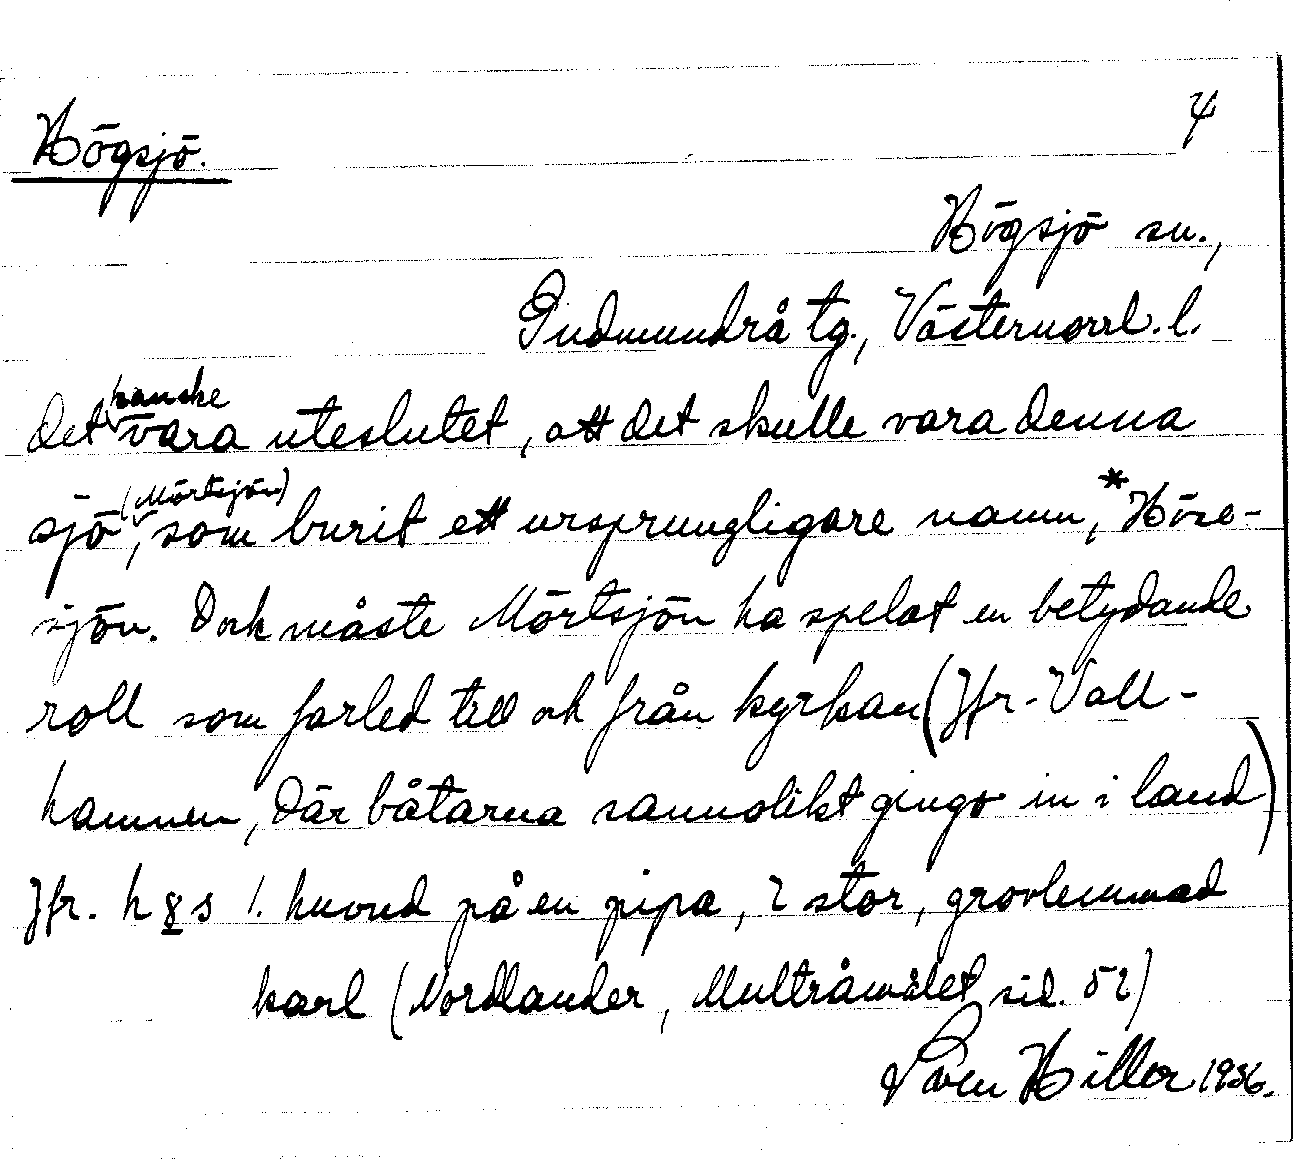 Högsjö.
4
Högsjö sn.,
Gudmundrå tg., Västernorrl. l.
det kanske vara uteslutet, att det skulle vara denna
sjö (Mörtsjön), som burit ett ursprungligare namn, *Höse-
sjön. Dock måste Mörtsjön ha spelat en betydande
roll som farled till och från kyrkan (Jfr. Vall-
hamnen, där båtarna sannolikt gingo in i land)
Jfr. h s 1. huvud på en pipa, 2 stor, grovlemmad
karl (Nordlander, Multråmålet sid. 52)
Sven Hiller 1936.